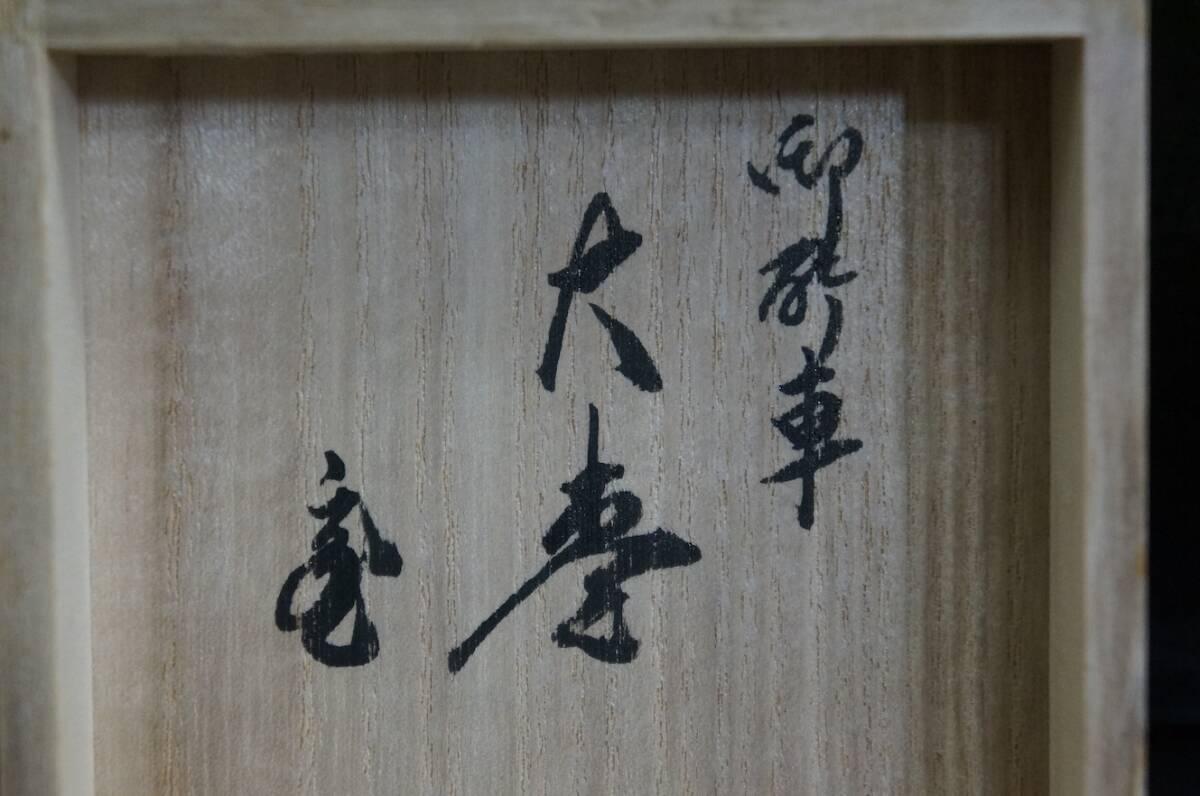 御所車
大寿